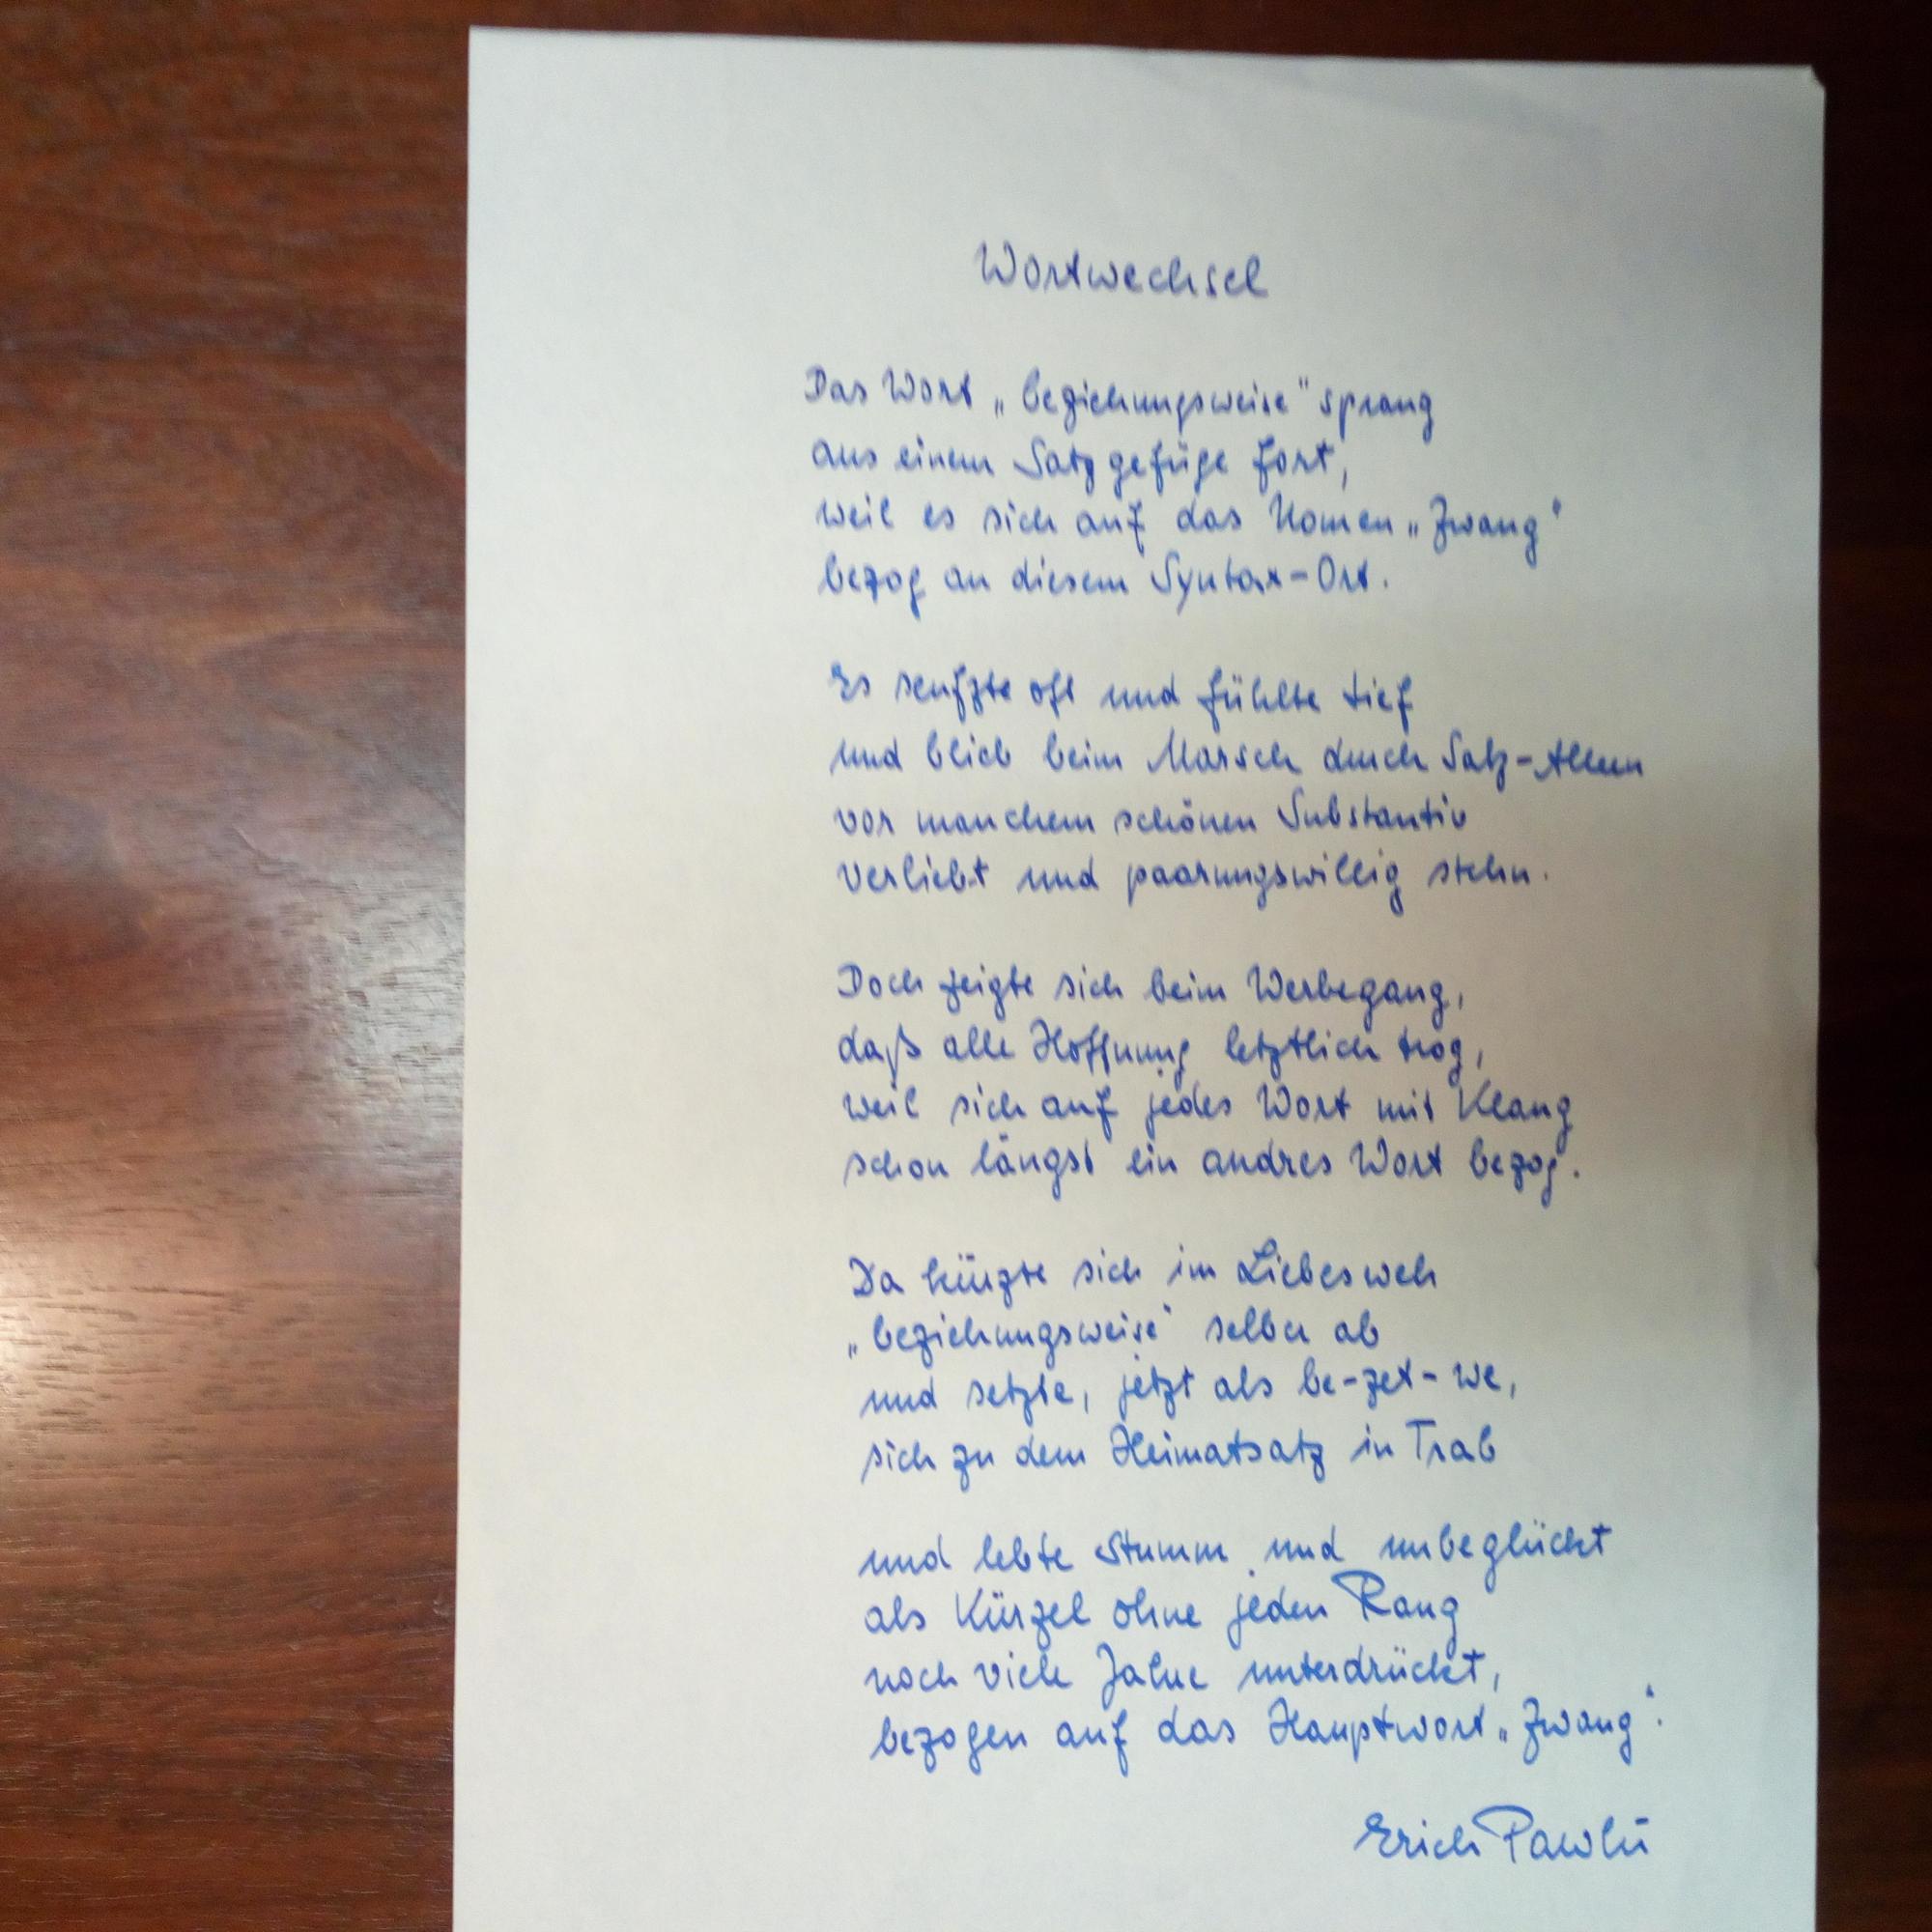 Wortwechsel
Das Wort „beziehungsweise" sprang
aus einem Satzgefüge fort,
weil es sich auf das Nomen „Zwang"
bezog an diesem Syntax-Ort.
Es seufzte oft und fühlte tief
und blieb beim Marsch durch Satz-Alleen
vor manchem schönen Substantiv
verliebt und paarungswillig stehn.
Doch zeigte sich beim Werbegang,
daß alle Hoffnung letztlich trog,
weil sich auf jedes Wort mit Klang
schon längst ein andres Wort bezog.
Da kürzte sich im Liebesweh
„beziehungsweise" selber ab
und setzte, jetzt als be-zet-we,
sich zu dem Heimatsatz in Trab
und lebte stumm und unbeglückt
als Kürzel ohne jeden Rang
noch viele Jahre unterdrückt,
bezogen auf das Hauptwort „Zwang".
Erich Pawlu